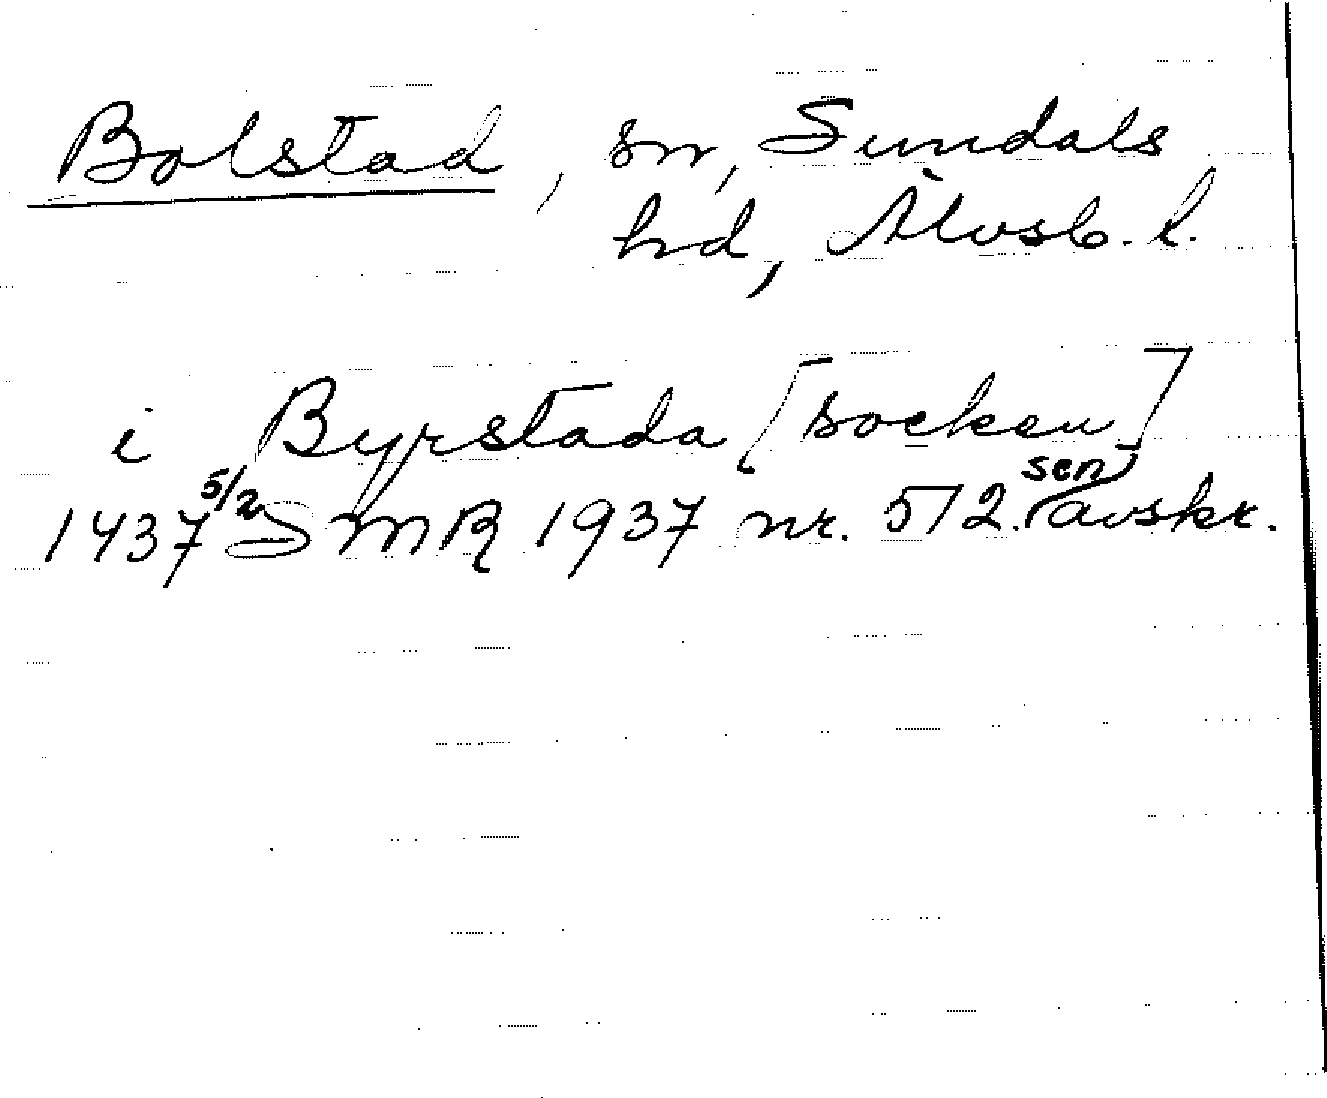 Bolstad, sn, Sundals
hd, Älvsb. l.
i Byrstada [socken]
1437 5/2 SMR 1937 nr. 512. sen avskr.